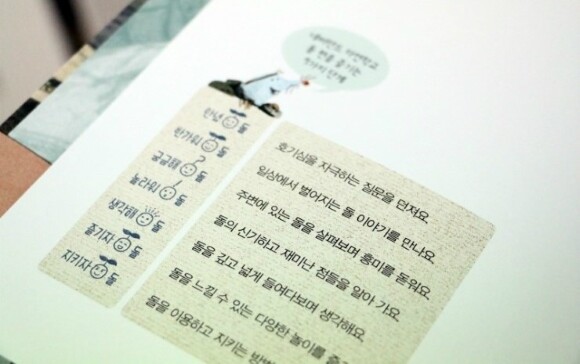 돌 한 번 즐기는
7가지 단계
안녕 돌
반가워 돌
궁금해 돌
놀라워 돌
생각해 돌
즐기자 돌
지키자 돌
호기심을 자극하는 질문을 던져요.
일상에서 벌어지는 돌 이야기를 만나요.
주변에 있는 돌을 살펴보며 흥미를 돋워요.
돌의 신기하고 재미난 점들을 알아 가요.
돌을 깊고 넓게 들여다보며 생각해요.
돌을 느낄 수 있는 다양한 놀이를
돌을 이용하고 지키는